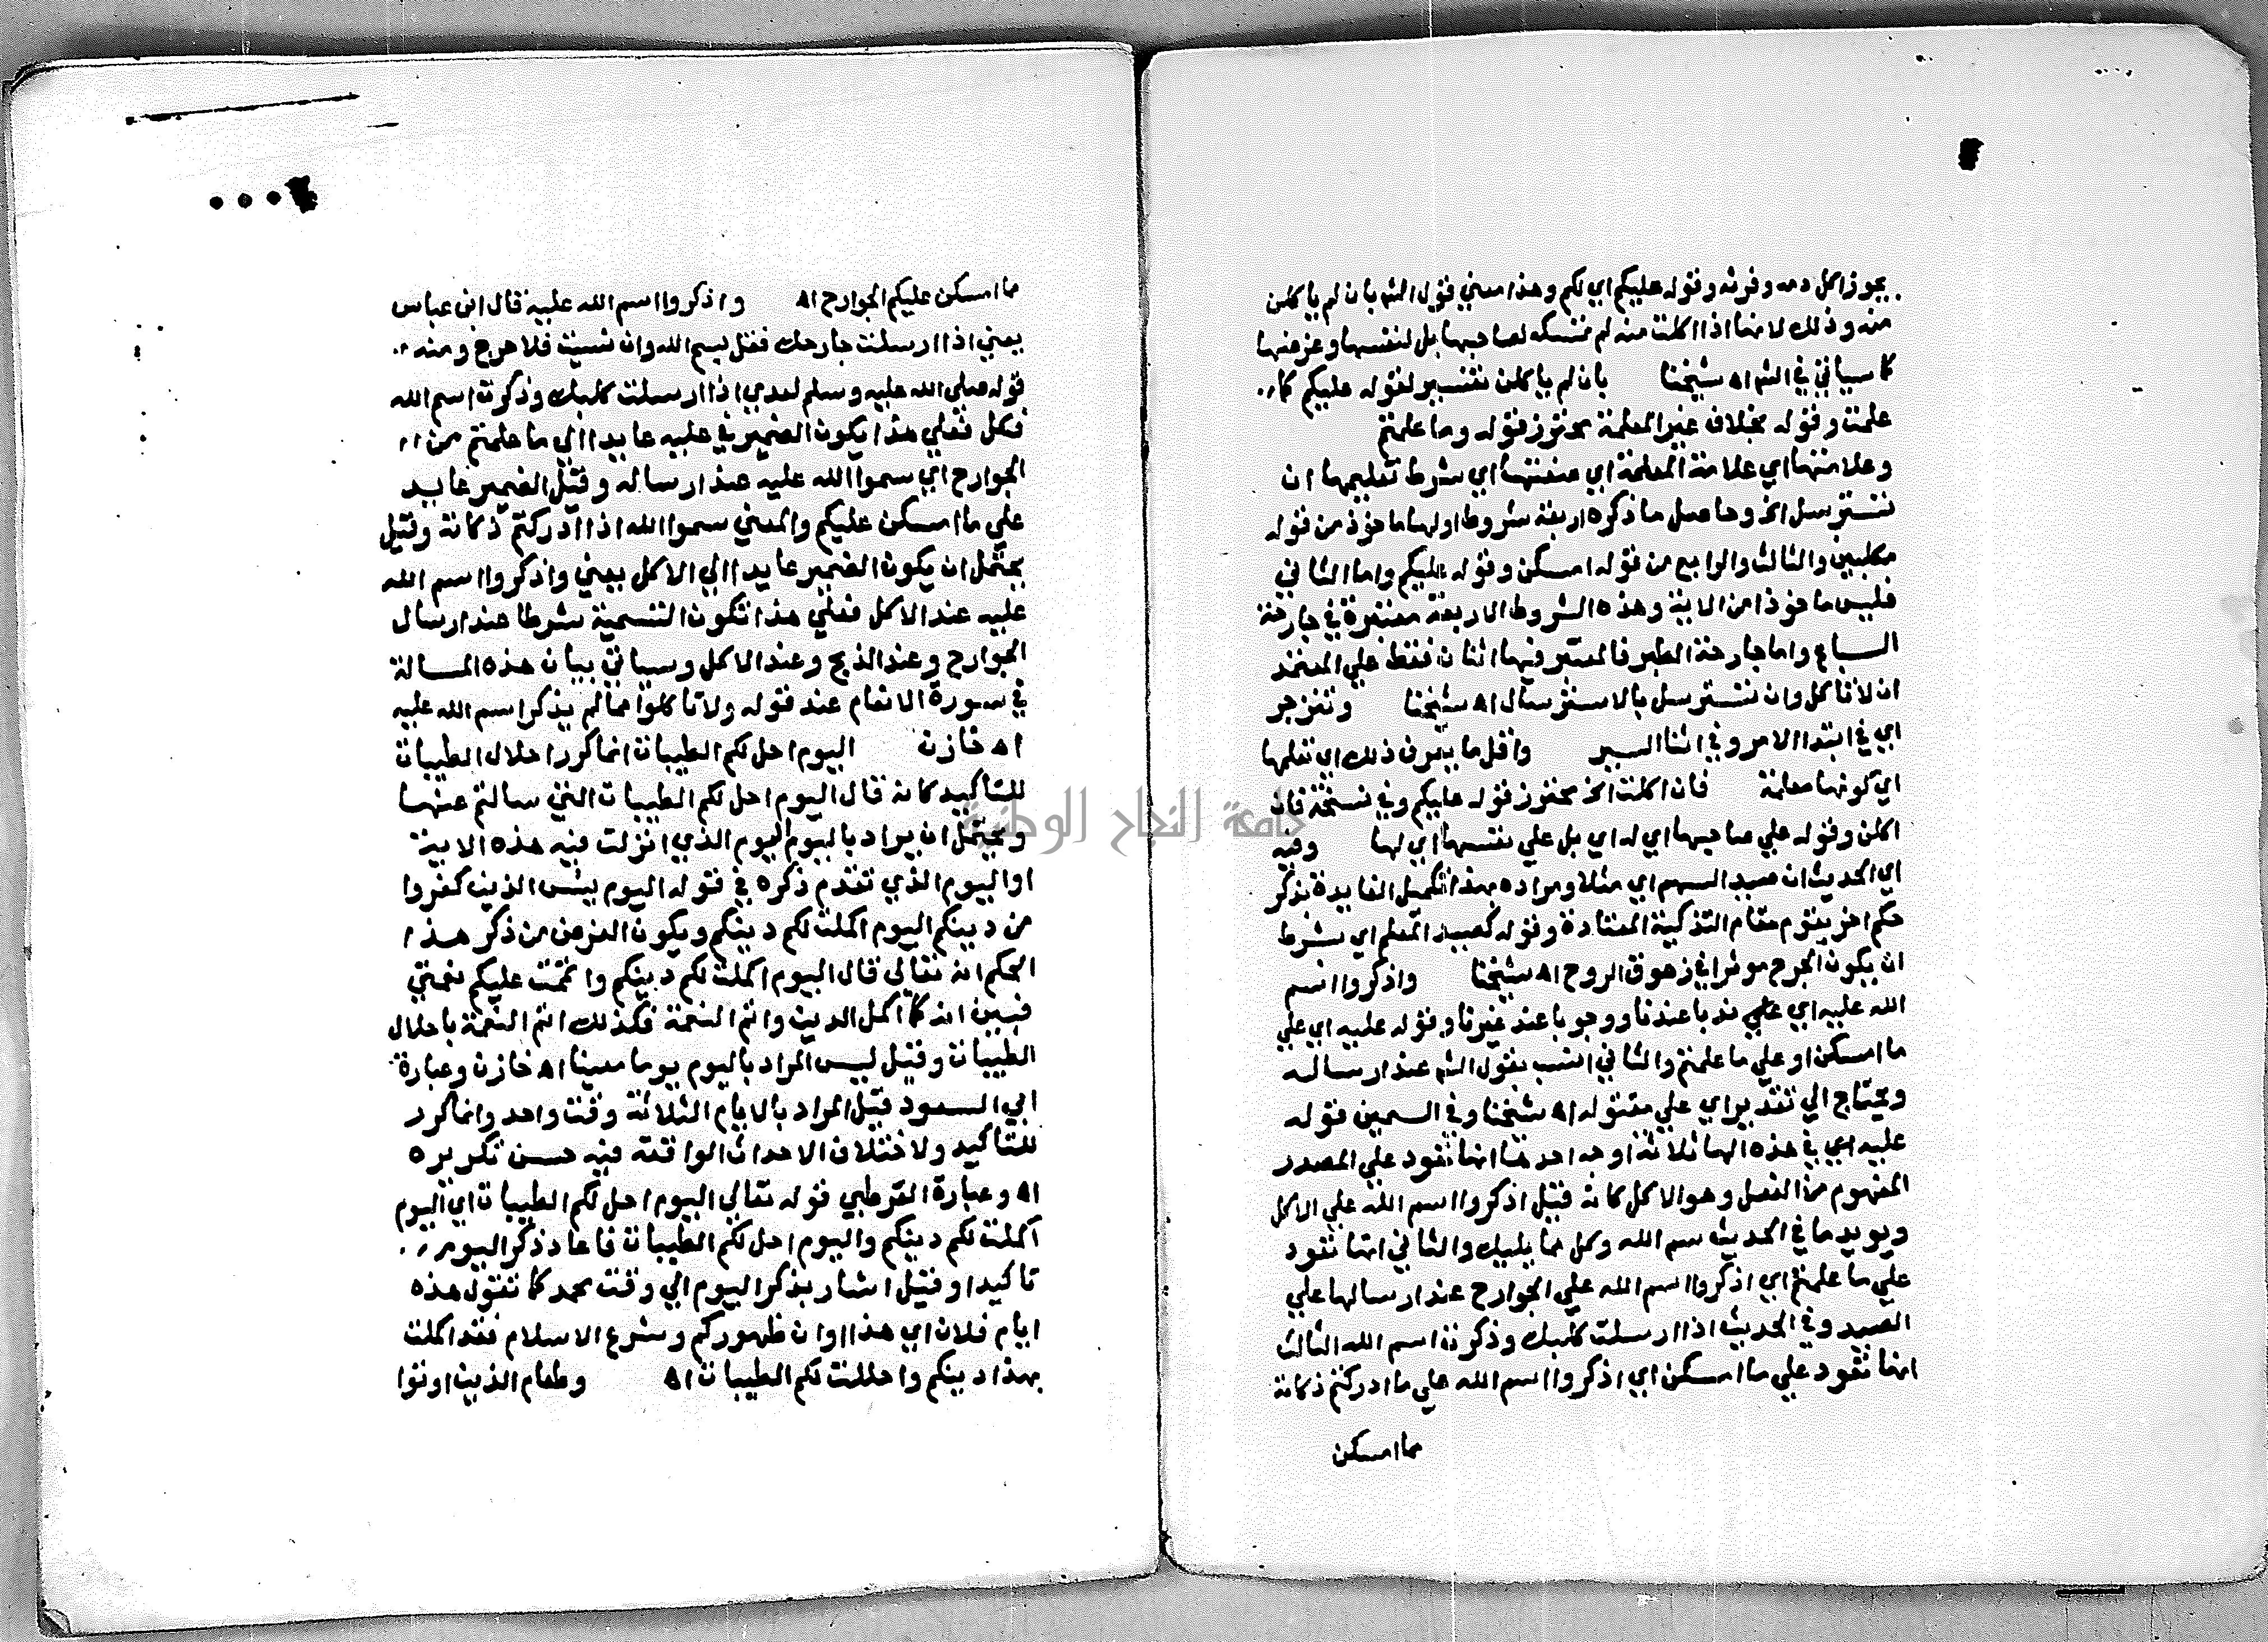 يجوز اكل دمه وفرثه وقوله عليكم اي لكم وهذا معني قول الشم بان لم ياكلن
منه وذلك لانها اذا اكلت منه لم تمسكه لصاحبها بل لنفسها وغرضها
كما سياتي في الشم اه شيخنا بان لم ياكلن تفسير لقوله عليكم كما
علمت وقوله بخلاف غير المعلمة محترز قوله وما علمتم
وعلامتها اي علامة المعلمة اي صفتها اي شرط تعليمها ان
تسترسل الخ وحاصل ما ذكره اربعة شروط اولها ماخوذ من قوله
مكلبين والثالث والرابع من قوله امسكن وقوله عليكم واما الثاني
فليس ماخوذا من الاية وهذه الشروط الاربعة معتبرة في جارحة
السباع واما جارحة الطير فالمعتبر فيها اثنان فقط علي المعتمد
ان لا تاكل وان تسترسل بالاسترسال اه شيخنا وتنزجر
اي في ابتدا الامر وفي اثنا السير واقل ما يعرف ذلك اي تعلمها
اي كونها معلمة فان اكلت الخ محترز قوله عليكم وفي نسخة فان
اكلن وقوله علي صاحبها اي له اي بل علي نفسها اي لها وفيه
اي الحديث ان صيد السهم اي مثلا ومراده بهذا تكميل الفايدة بذكر
حكم اخر يقوم مقام التذكية المعتادة وقوله كصيد المعلم اي بشرط
ان يكون الجرح موثرا في زهوق الروح اه شيخنا واذكروا اسم
الله عليه اي علي ندبا عندنا ووجوبا عند غيرنا وقوله عليه اي علي
ما امسكن او علي ما علمتم والثاني انسب بقول الشم عند ارساله
ويحتاج الي تقدير اي علي مقتوله اه شيخنا وفي السمين قوله
عليه اي في هذه الها ثلاثة اوجه احدها انها تعود علي المصدر
المفهوم من الفعل وهو الاكل كانه قيل اذكروا اسم الله علي الاكل
ويويد ما في الحديث سم الله وكل مما يليك والثاني انها تعود
علي ما علمتم اي اذكروا اسم الله علي الجوارح عند ارسالها علي
الصيد وفي الحديث اذا ارسلت كلبك وذكرت اسم الله الثالث
انها تعود علي ما امسكن اي اذكروا اسم الله علي ما ادركتم ذكاته
مما امسكن
مما امسكن عليكم الجوارح اه واذكروا اسم الله عليه قال ابن عباس
يعني اذا ارسلت جارحك فقل بسم الله وان نسيت فلا حرج ومنه
قوله صلي الله عليه وسلم لعدي اذا ارسلت كلبك وذكرت اسم الله
فكل فعلي هذا يكون الضمير في عليه عايدا الي ما علمتم من
الجوارح اي سموا الله عليه عند ارساله وقيل الضمير عايد
علي ما امسكن عليكم والمعني سموا الله اذا ادركتم ذكاته وقيل
يحتمل ان يكون الضمير عايدا الي الاكل يعني واذكروا اسم الله
عليه عند الاكل فعلي هذا تكون التسمية شرطا عند ارسال
الجوارح وعند الذبح وعند الاكل وسياتي بيان هذه المسالة
في سورة الانعام عند قوله ولا تاكلوا مما لم يذكر اسم الله عليه
اه خازن اليوم احل لكم الطيبات انما كرر احلال الطيبات
للتاكيد كانه قال اليوم احل لكم الطيبات التي سالتم عنها
ويحتمل ان يراد باليوم اليوم الذي انزلت فيه هذه الاية
او اليوم الذي تقدم ذكره في قوله اليوم يئس الذين كفروا
من دينكم اليوم اكملت لكم دينكم ويكون الغرض من ذكر هذا
الحكم انه تعالي قال اليوم اكملت لكم دينكم واتممت عليكم نعمتي
فبين انه كما اكمل الدين واتم النعمة فكذلك اتم النعمة باحلال
الطيبات وقيل ليس المراد باليوم يوما معينا اه خازن وعبارة
ابي السعود قيل المراد بالايام الثلاثة وقت واحد وانما كرر
للتاكيد ولاختلاف الاحداث الواقعة فيه حسن تكريره
اه وعبارة القرطبي قوله تعالي اليوم احل لكم الطيبات اي اليوم
اكملت لكم دينكم واليوم احل لكم الطيبات فاعاد ذكر اليوم
تاكيدا وقيل اشار بذكر اليوم الي وقت محمد كما تقول هذه
ايام فلان اي هذا اوان ظهوركم وشرع الاسلام فقد اكملت
بهذا دينكم واحللت لكم الطيبات اه وطعام الذين اوتوا
جامعة النجاح الوطنية